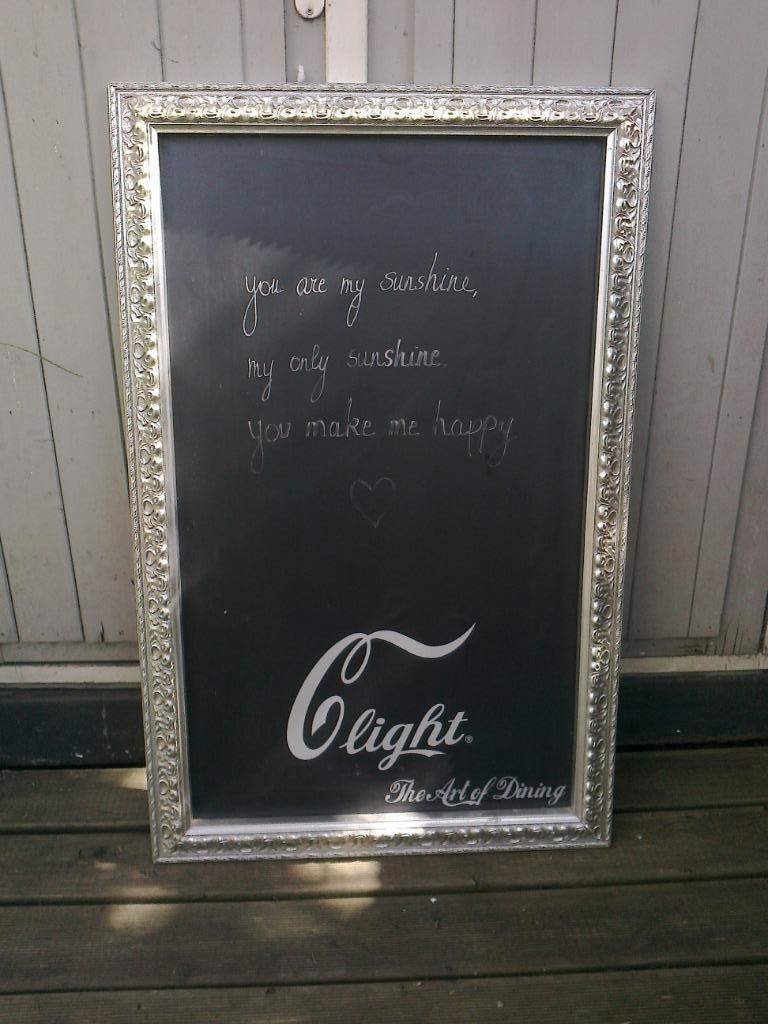 you are my sunshine,
my only sunshine.
you make me happy
Clight®
The Art of Dining